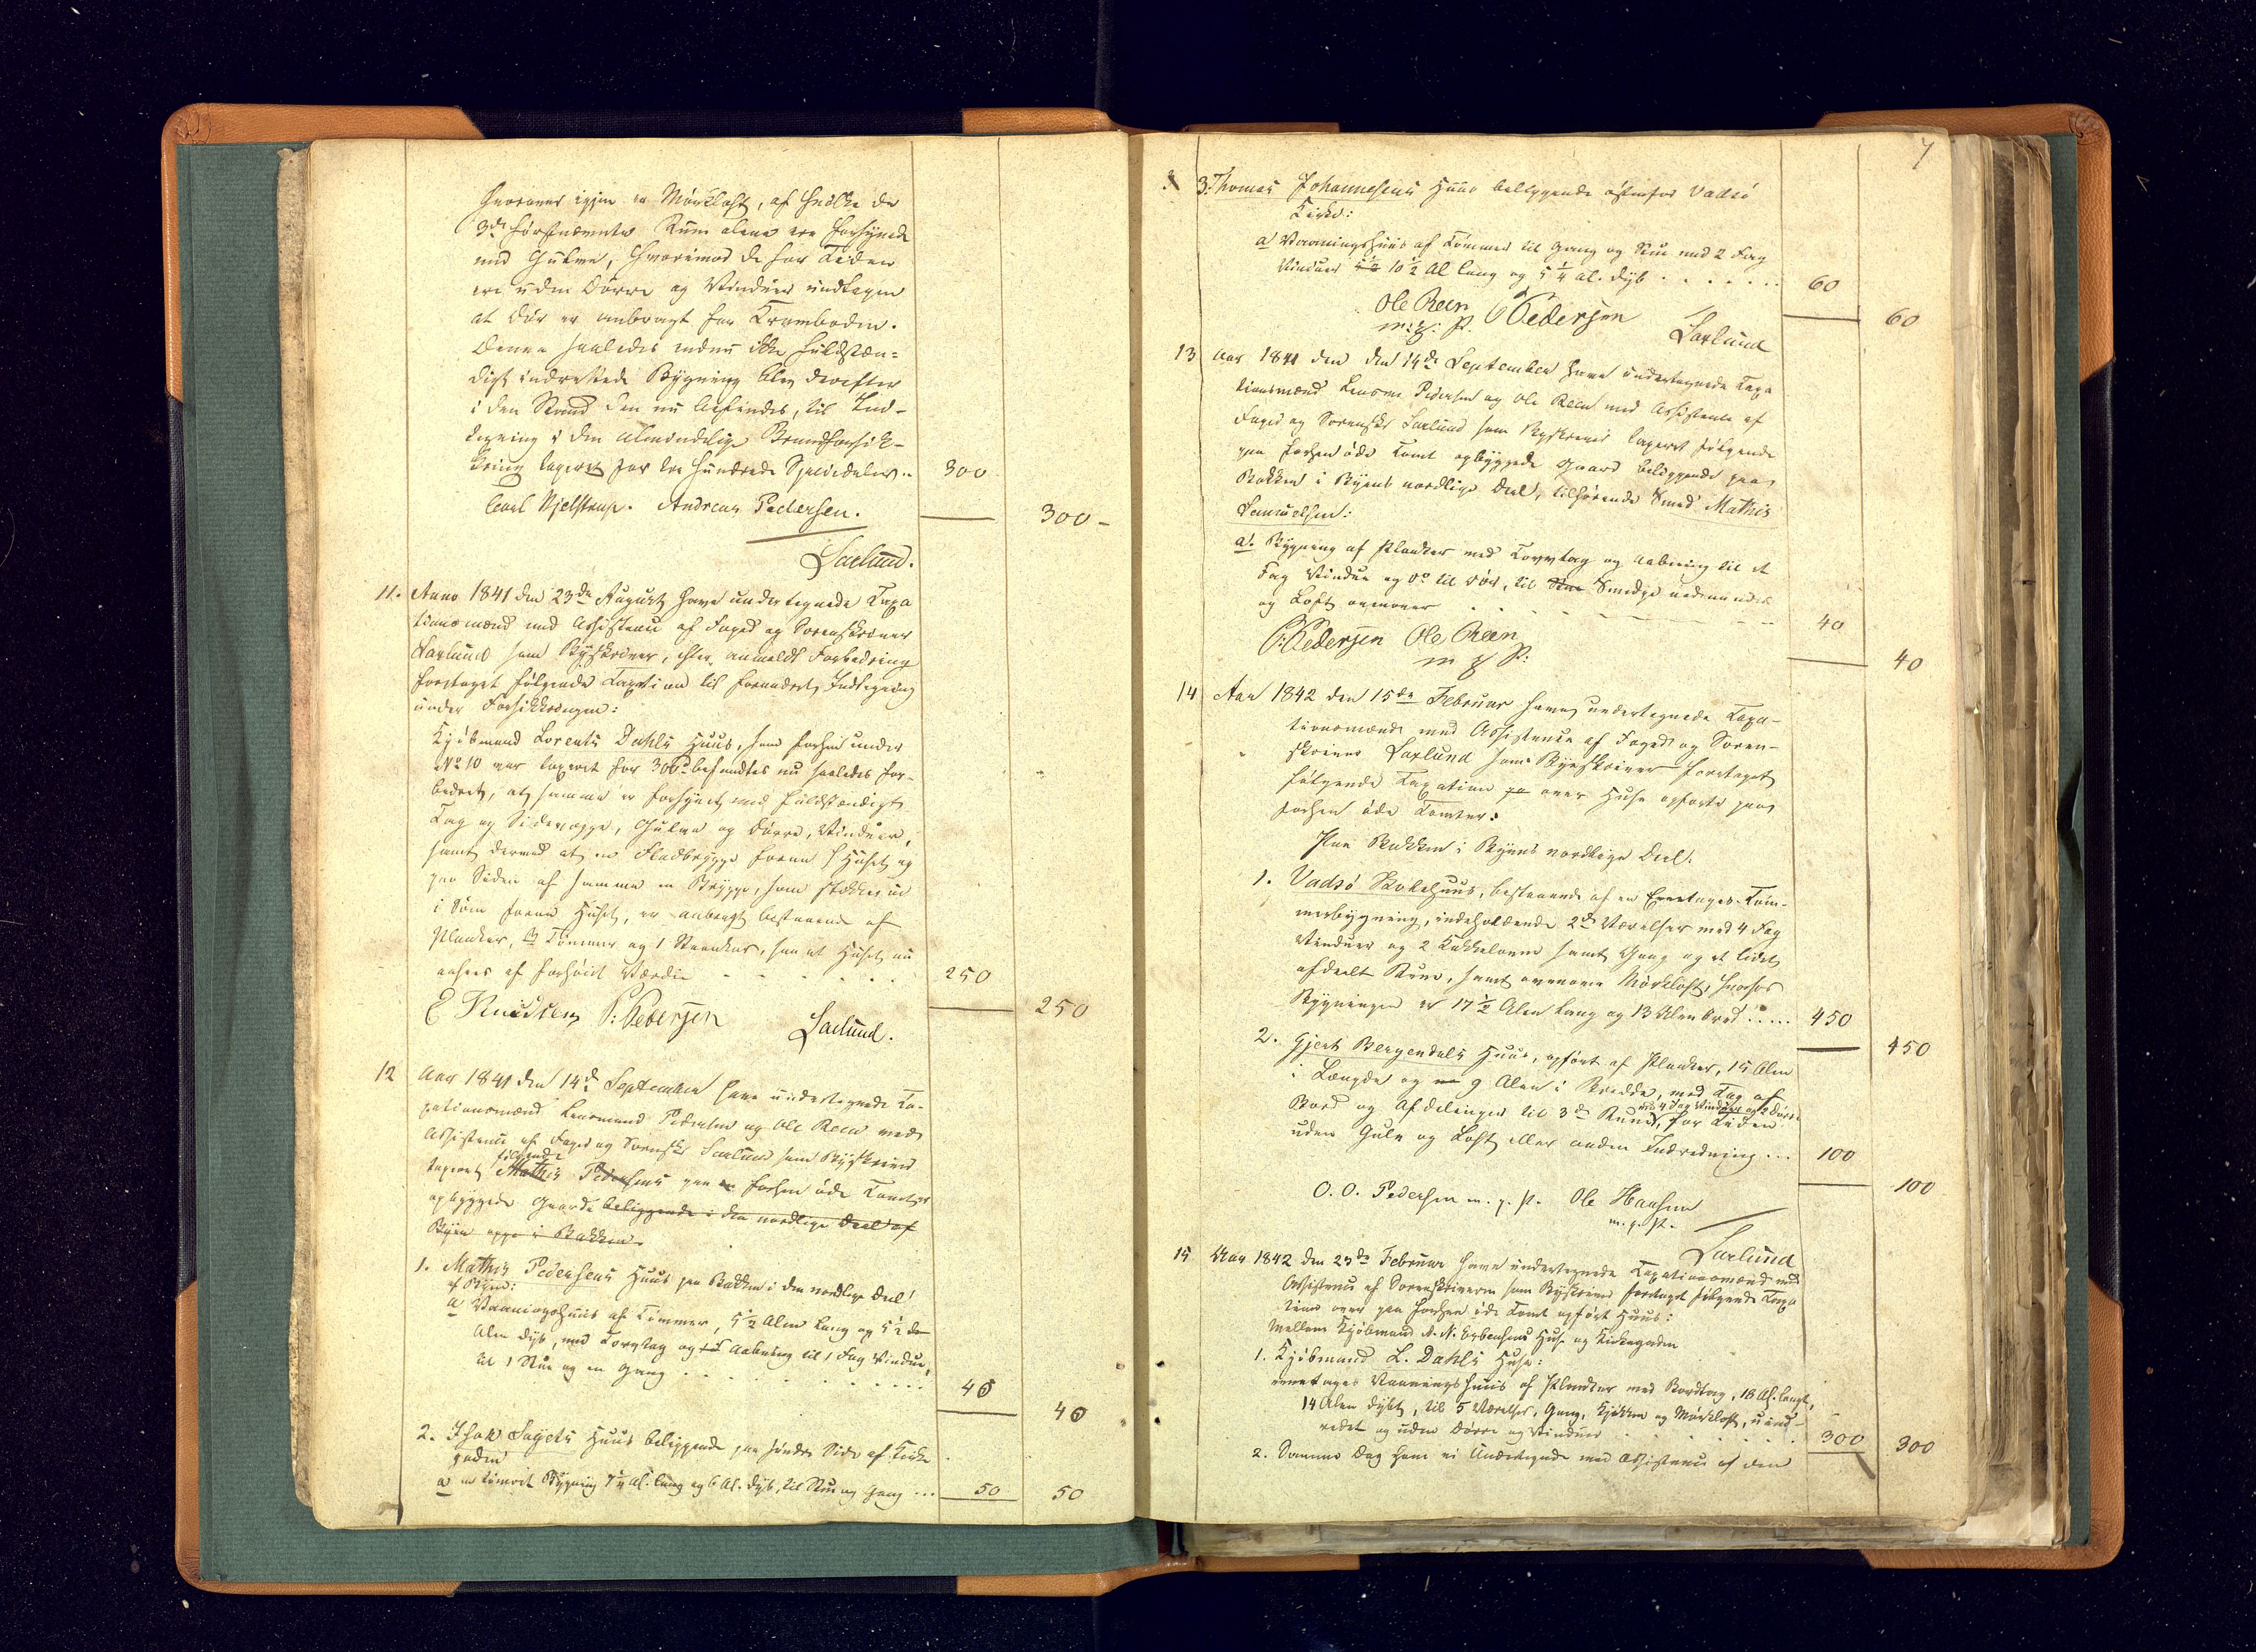 hvorover igjen er Mørkloft, af hvilke de
3de førstnævnte Rum alene ere forsynede
med Gulve, hvorimod de for Tiden
ere uden Dörre og Vinduer undtagen
at Dör er anbragt for Kramboden.
Denne saaledes endnu ikke fuldstæn-
digt indrettede Bygning blev derefter
i den Stand den nu befindes, til Ind-
tegning i den almindelige Brandforsik-
kring taxeret for tre hundrede Speciedaler .. 300
300 -
Carl Kjelstrup. Andreas Pedersen.
Sarlund.
11. Anno 1841 den 23de August have undertegnede Taxa
tionsmænd med Assistence af Foged og Sorenskriver
Sarlund som Byskriver, efter anmeldt Forbedring
foretaget følgende Taxation til forandret Indtegning
under Forsikkringen:
Kjöbmand Lorents Dahls Huus, som forhen under
No 10 var taxeret for 300 befandtes nu saaledes for-
bedret, at samme er forsynet med fuldstændigt
Tag og Sidevægge, Gulve og Dörre, Vinduer,
samt dermed at en Fladbrygge foran Huset og
paa Siden af samme en Brygge, som
i Söen foran Huset, er anbragt bestaaende af
Planker, Tömmer og 1 Steenkar, saa at Huset nu
ansees af forhöiet Værdie 250
250
E Knudsen P: Pedersen Sarlund.
12 Aar 1841 den 14de September have undertegnede Ta-
xationsmænd Lensmand Pedersen og Ole Reen med
Assistence af Foged og Sorenskr Sarlund som Byskriver
taxeret følgende Mathis Pedersens paa en forhen öde Tomter
opbyggede Gaarde beliggende i den nordlige Deel af
Byen oppe i Bakken.
1. Mathis Pedersens Huus paa Bakken i den nordlige Deel
af Byen:
a Vaaningshuus af Tömmer, 5 1/2 Alen lang og 5 1/2
Alen dyb, med Torvtag og Aabning til 1 Fag Vindue,
til 1 Stue og en Gang 40
40
2. Isak Sagets Huus beliggende paa söndre Side af Kirke
gaden
a en tömret Bygning 7 1/4 Al. lang og 6 Al. dyb, til Stue og Gang ... 50 50
7
3. Thomas Johannesens Huus beliggende östenfor Vadsö
Kirke:
a Vaaningshuus af Tömmer til Gang og Stue med 2 Fag
Vinduer 10 1/2 Al lang og 5 1/4 al. dyb 60
60
Ole Reen P Pedersen Sarlund
m: P.
13 Aar 1841 den den 14de September have undertegnede Taxa
tionsmænd Lensm. Pedersen og Ole Reen med Assistence af
Foged og Sorenskr Sarlund som Byskriver taxeret følgende
paa forhen öde Tomt opbyggede Gaard beliggende paa
Bakken i Byens nordlige Deel, tilhørende Smed Mathis
Samuelsen:
a. Bygning af Planker med Torvtag og Aabning til et
Fag Vindue og do til Dör, til Stue Smedje nedenunder
og Loft ovenover 40
40
P: Pedersen Ole Reen
m P:
14 Aar 1842 den 15de Februar have undertegnede Taxa-
tionsmænd med Assistence af Foged og Soren-
skriver Sarlund som Byeskriver foretaget
følgende Taxation over Huse opförte paa
forhen öde Tomter:
Paa Bakken i Byens nordlige Deel.
1. Vadsö Skolehuus, bestaaende af en Eenetages Töm-
merbygning, indeholdende 2de Værelser med 4 Fag
Vinduer og 2 Kakkelovne samt Gang og et lidet
afdeelt Rum, samt ovenover Mørkloft, hvorfor
Bygningen er 17 1/2 Alen lang og 13 Alen bred ..... 450
450
2. Gjert Bergendals Huus, opfört af Planker, 15 Alen
i Længde og 9 Alen i Bredde, med Tag af
Bord og Afdelinger til 3de Rum, med 4 Fag Vinduer og 2 Dörre for Tiden
uden Gulv og Loft eller anden Indredning ... 100
100
O. O. Pedersen m. p. P. Ole Hansen
m. p. P. Sarlund
15 Aar 1842 den 23de Februar have undertegnede Taxationsmænd med
Assistence af Sorenskriveren som Byskriver foretaget følgende Taxa
tion over paa forhen öde Tomt opfört Huus:
Mellem Kjöbmand N. N. Esbensens Huse og Kirkegaden
1. Kjöbmand L. Dahls Huse:
eenetages Vaaningshuus af Planker med Bordtag, 18 Al. langt,
14 Alen dybt, til 5 Værelser, Gang, Kjökken og Mørkloft, uind-
redet og uden Dörre og Vinduer 300 300
2. Samme Dag have vi Undertegnede med Assistence af den